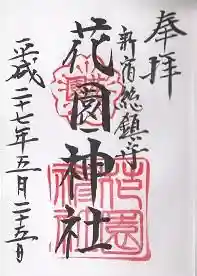 奉拝
新宿総鎮守
花園神社
平成二十七年五月二十五日